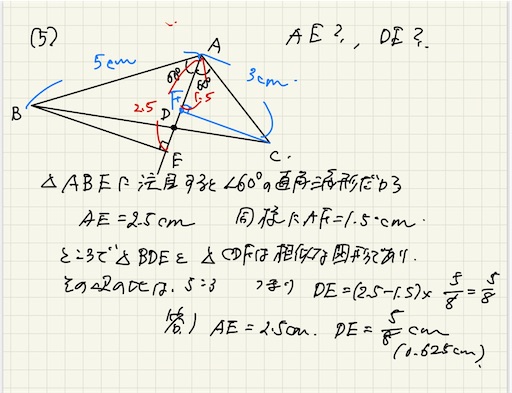 (5)
AE?, DE?
A
5cm
60°
60°
3cm
B
2.5
F
1.5
D
E
C.
△ABEに注目すると∠60°の直角三角形だから
AE=2.5cm 同様にAF=1.5cm.
ところで△BDEと△CDFは相似な図形であり.
その辺の比は、5:3 つまり DE=(2.5-1.5)×5/8=5/8
AE=2.5cm. DE=5/8cm
(0.625cm)